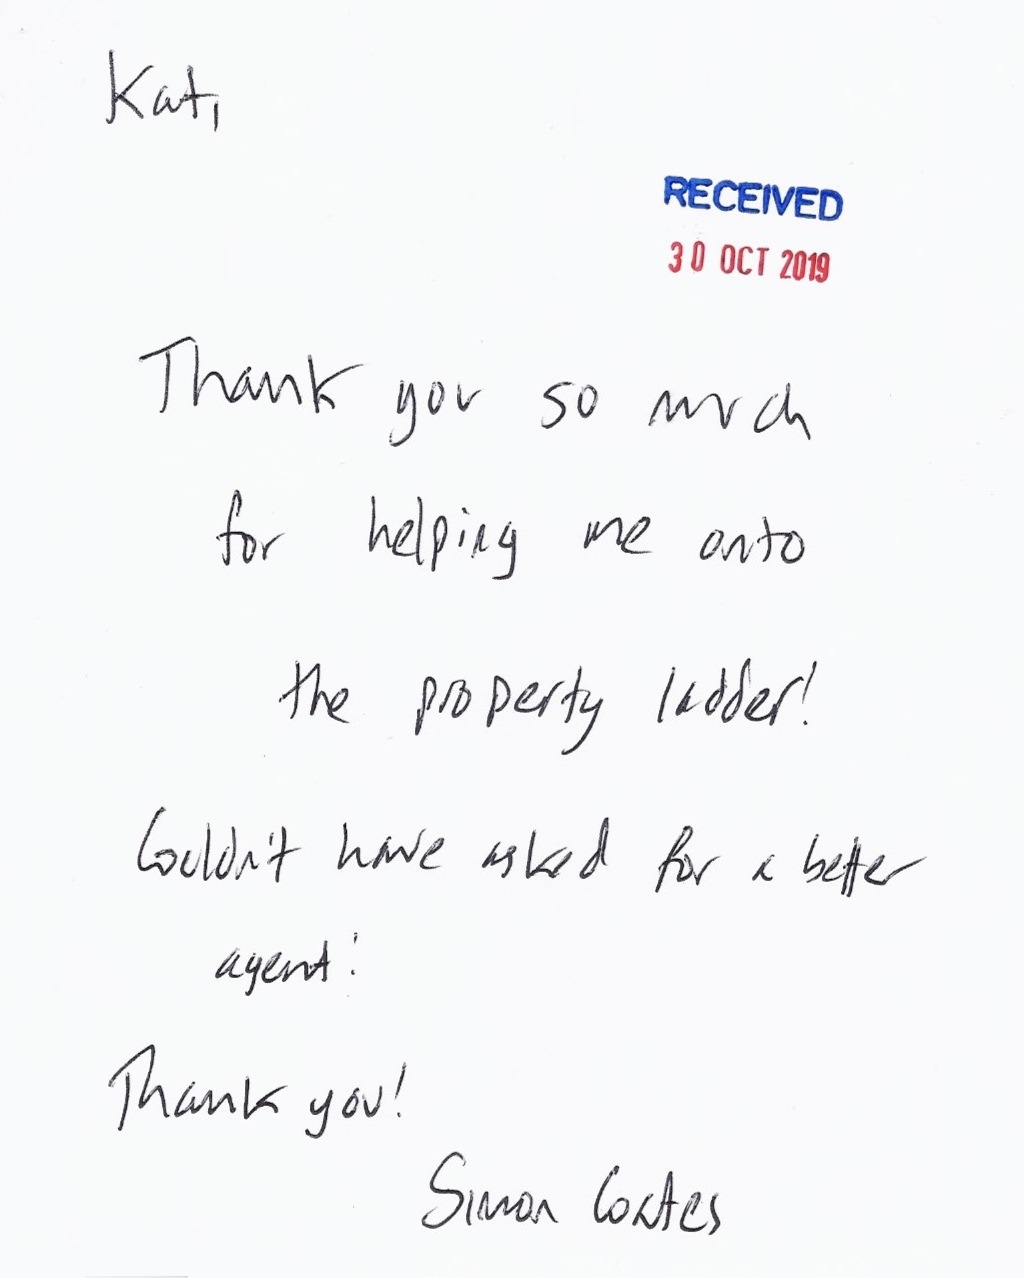 Kat,
RECEIVED
30 OCT 2019
Thank you so much
for helping me onto
the property ladder!
Couldn't have asked for a better
agent!
Thank you!
Simon Coates